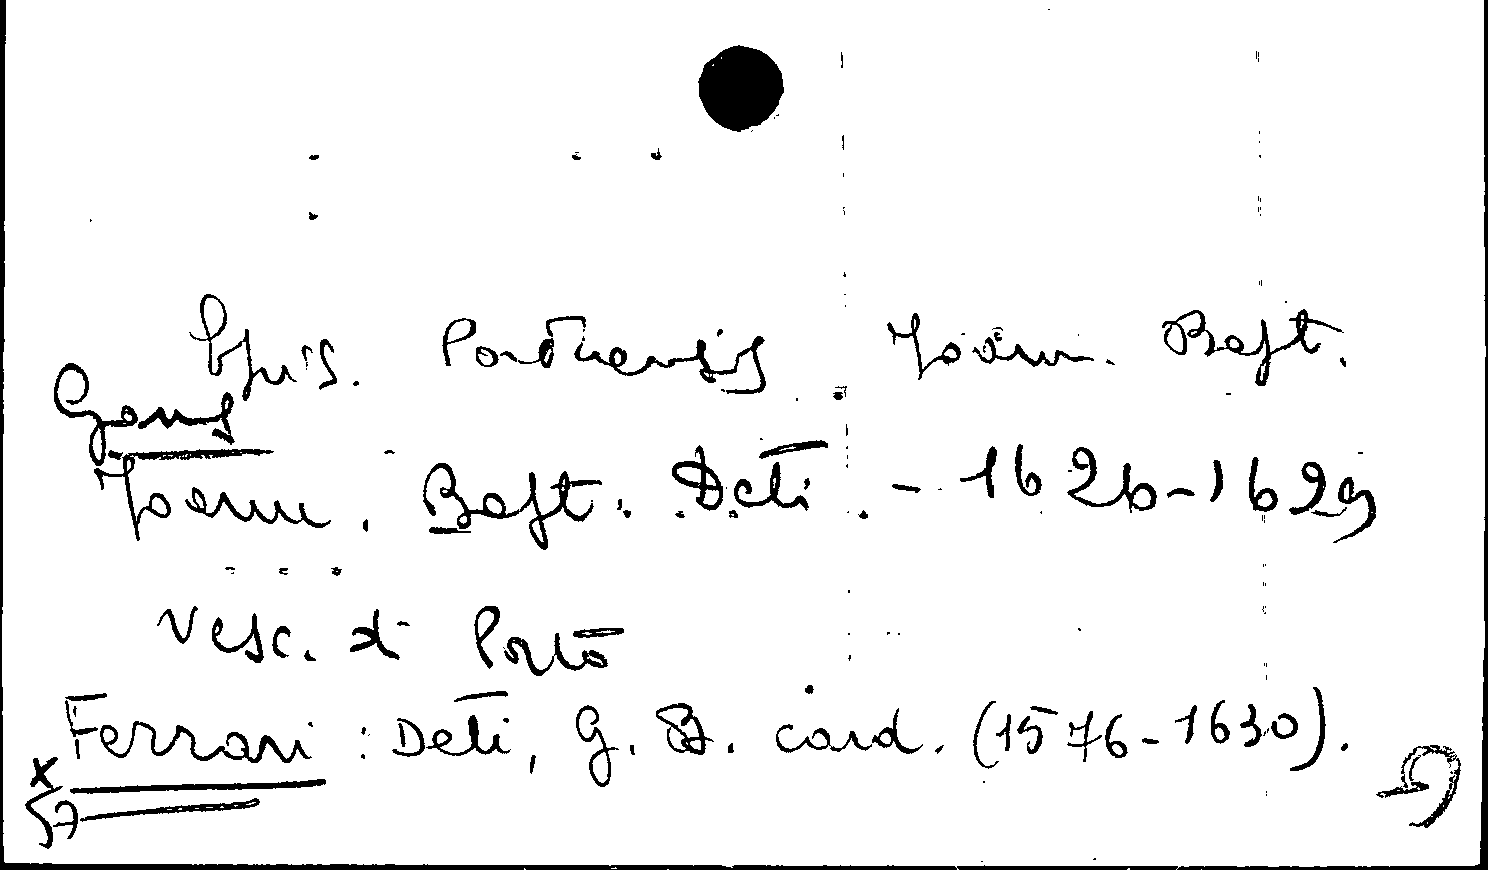 Epus. Portuensis Joann. Bapt.
Gams
Joann. Bapt. Deti - 1626-1629
Vesc. di Porto
Ferrari : Deti, G. B. card. (1576-1630).
x
57